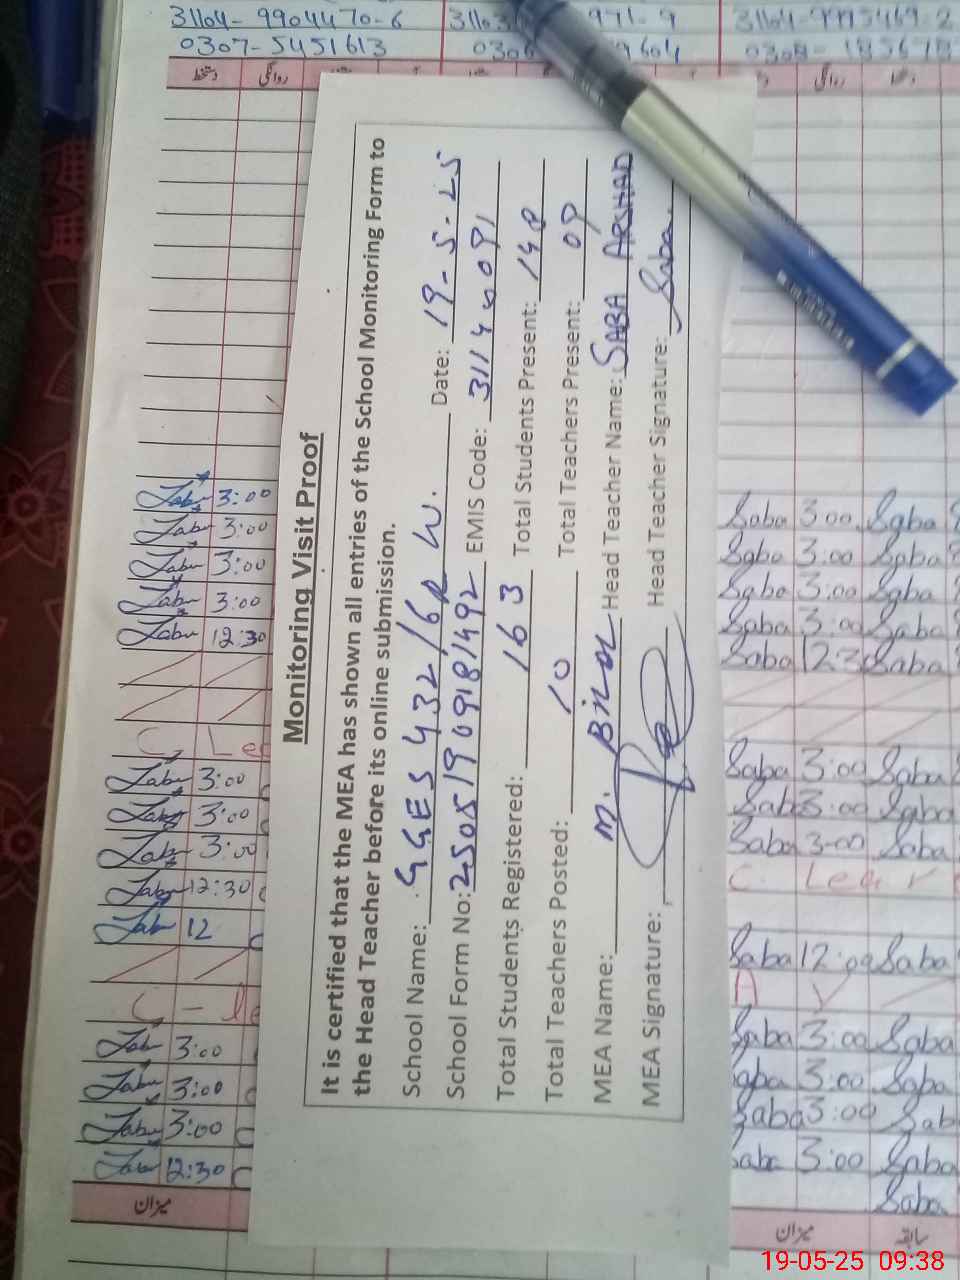 31104-9904470-6
0307-5451613
971-9
31104-9995469-2
دستخط
روانگی
روانگی
دستخط
Monitoring Visit Proof
It is certified that the MEA has shown all entries of the School Monitoring Form to
the Head Teacher before its online submission.
School Name: GGES 432/6R W. Date: 19-5-25
School Form No: 25051909181492 EMIS Code:
Total Students Registered: 163 Total Students Present: 148
Total Teachers Posted: 10 Total Teachers Present: 09
MEA Name: M. Bilal Head Teacher Name: SABA ARSHAD
MEA Signature: Head Teacher Signature: Saba.
3:00
3:00
3:00
3:00
12:30
3:00
3:00
3:00
12:30
12
3:00
3:00
3:00
12:30
میزان
Saba 3:00 Saba
Saba 3:00 Saba
Saba 3:00 Saba
Saba 3:00 Saba
Saba 12:30 Saba
Saba 3:00 Saba
Saba 3:00 Saba
Saba 3:00 Saba
C. Leav
Saba 12:00 Saba
A
Saba 3:00 Saba
Saba 3:00 Saba
Saba 3:00 Sab
Saba 3:00 Saba
Saba
میزان
سابقہ
19-05-25 09:38